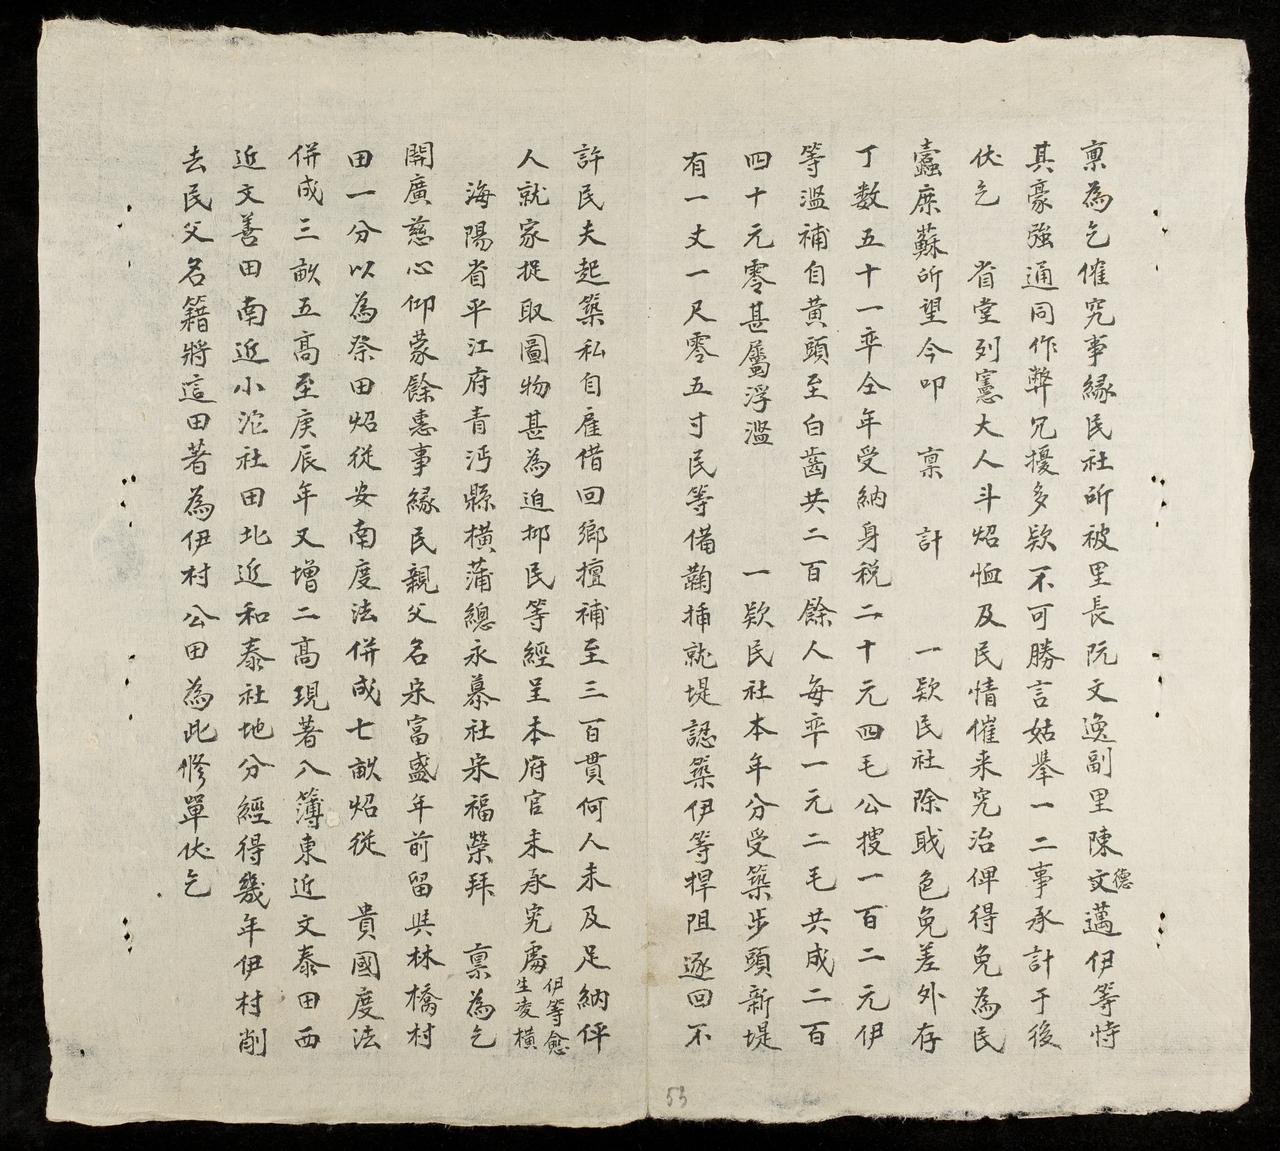 禀為乞催究事緣民社所被里長阮文逸副里陳文德邁伊等恃
其豪強通同作弊冗擾多欵不可勝言姑舉一二事承計于後
伏乞　省堂列憲大人斗炤恤及民情催来究治俾得免為民
蠹庶蘇所望今叩　禀　計　一欵民社除戢色免差外存
丁数五十一率仝年受納身稅二十元四毛公搜一百二元伊
等滥補自黄頭至白齒共二百餘人每率一元二毛共成二百
四十元零甚屬浮滥　一欵民社本年分受築步頭新堤
有一丈一尺零五寸民等備鞠挿就堤認築伊等捍阻逐回不
許民夫起築私自雇借回鄉擅補至三百貫何人未及足納伻
人就家捉取圖物甚為迫抑民等經呈本府官未承究處伊等愈生凌橫
海陽省平江府青沔縣橫蒲總永慕社宋福榮拜　禀為乞
開廣慈心仰蒙餘惠事緣民親父名宋富盛年前留與林橋村
田一分以為祭田炤從安南度法併成七畝炤從　貴國度法
併成三畝五高至庚辰年又增二高現著八簿東近文泰田西
近文善田南近小沱社田北近和泰社地分經得幾年伊村削
去民父名籍將這田著為伊村公田為此修單伏乞
53